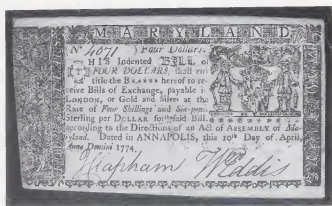 MARYLAND
No 4071 Four Dollars.
THIS Indented BILL of
FOUR DOLLARS, shall en-
title the BEARER hereof to re-
ceive Bills of Exchange, payable in
LONDON, or Gold and Silver at the
Rate of Four Shillings and Six-pence
Sterling per DOLLAR for said Bill,
according to the Directions of an Act of ASSEMBLY of Ma-
ryland. Dated in ANNAPOLIS, this 10th Day of April,
Anno Domini 1774.
J Clapham W Eddis